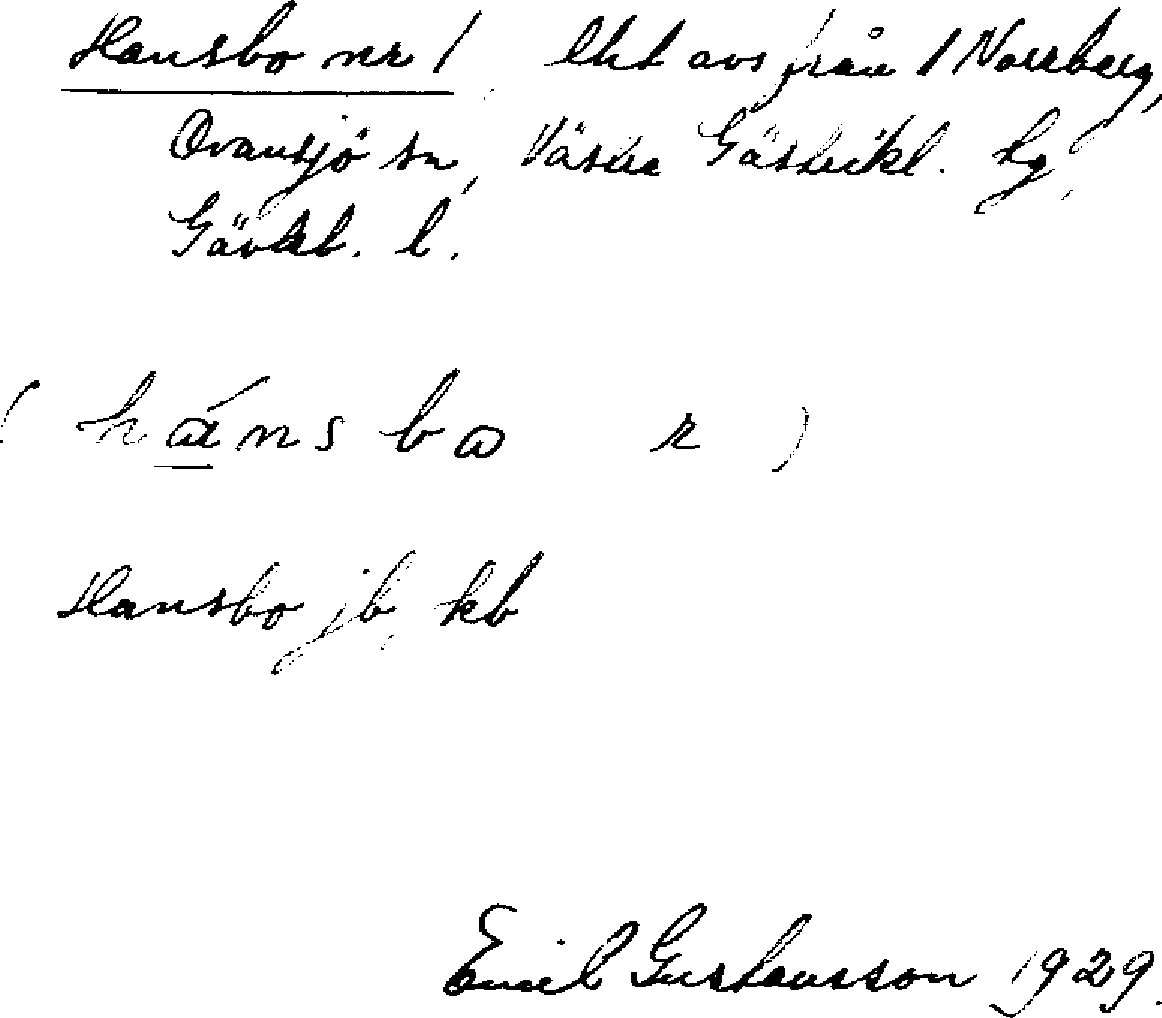 Hansbo nr 1 lht avs från 1 Norrberg,
Ovansjö sn, Västra Gästrikl. hg,
Gävleb. l.
( hánsbo r )
Hansbo jb, kb
Emil Gustavsson 1929.